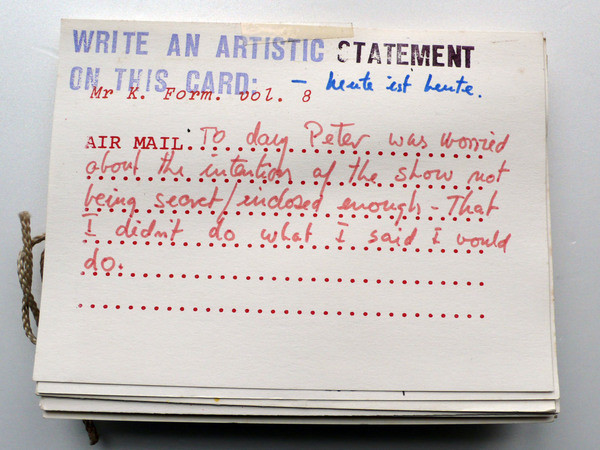 WRITE AN ARTISTIC STATEMENT
ON THIS CARD: - heute ist heute.
Mr K. Form. vol. 8
AIR MAIL To day Peter was worried
about the intention of the show not
being secret/inclosed enough - That
I didn't do what I said I would
do.